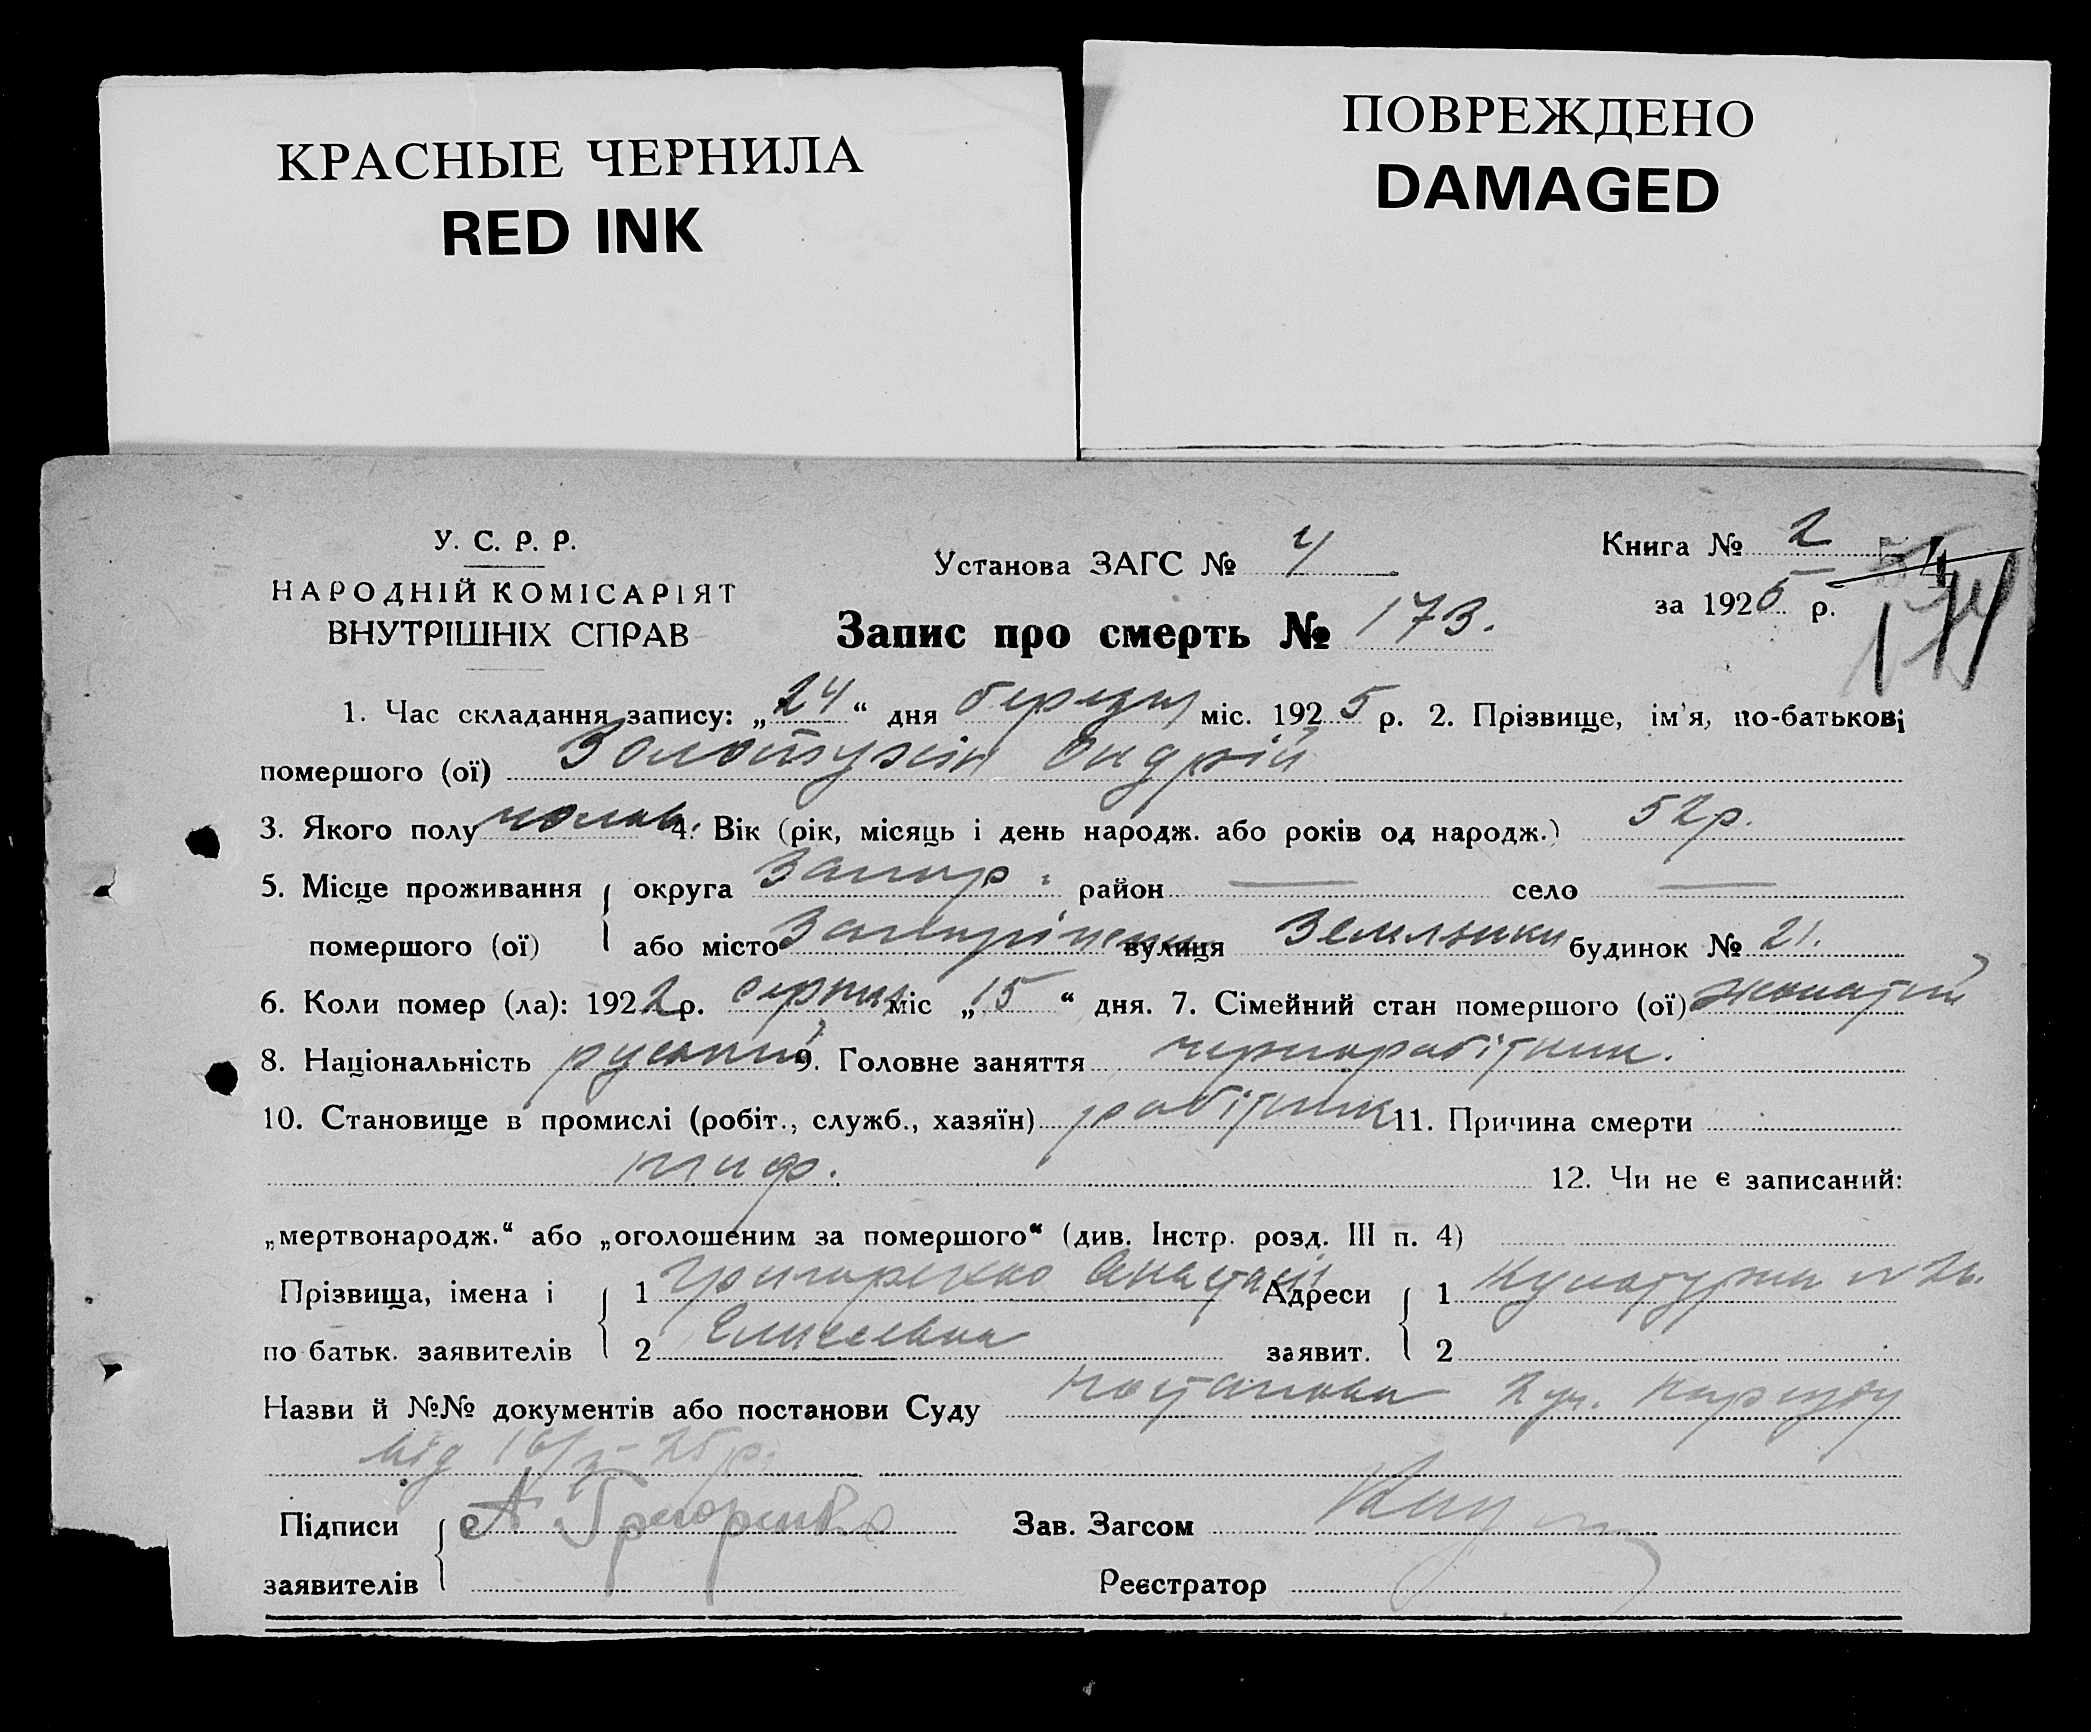 КРАСНЫЕ ЧЕРНИЛА
RED INK
ПОВРЕЖДЕНО
DAMAGED
У. С. Р. Р.
НАРОДНІЙ КОМІСАРІЯТ
ВНУТРІШНІХ СПРАВ
Установа ЗАГС № 4
Запис про смерть № 173.
Книга № 2
за 1925 р.
174
1. Час складання запису: „24“ дня березня міс. 1925 р. 2. Прізвище, ім'я, по-батькові
помершого (ої) Золотухін Андрій
3. Якого полу чолов. 4. Вік (рік, місяць і день народж. або років од народж.) 52 р.
5. Місце проживання округа Запор. район — село —
помершого (ої) або місто вулиця будинок № 21.
6. Коли помер (ла): 1922 р. серпня міс „15“ дня. 7. Сімейний стан помершого (ої) жонатий
8. Національність руський 9. Головне заняття чорноробітник.
10. Становище в промислі (робіт., служб., хазяїн) робітник 11. Причина смерти
тиф. 12. Чи не є записаний:
„мертвонародж.“ або „оголошеним за помершого“ (див. Інстр. розд. III п. 4)
Прізвища, імена і 1 Григоренко Анастасія Адреси 1 № 26.
по батьк. заявителів 2 Елисеевна заявит. 2
Назви й №№ документів або постанови Суду постанова 2 уч. Нарсуду
від 16/ 25 р.
Підписи А Григоренко Зав. Загсом
заявителів Реєстратор